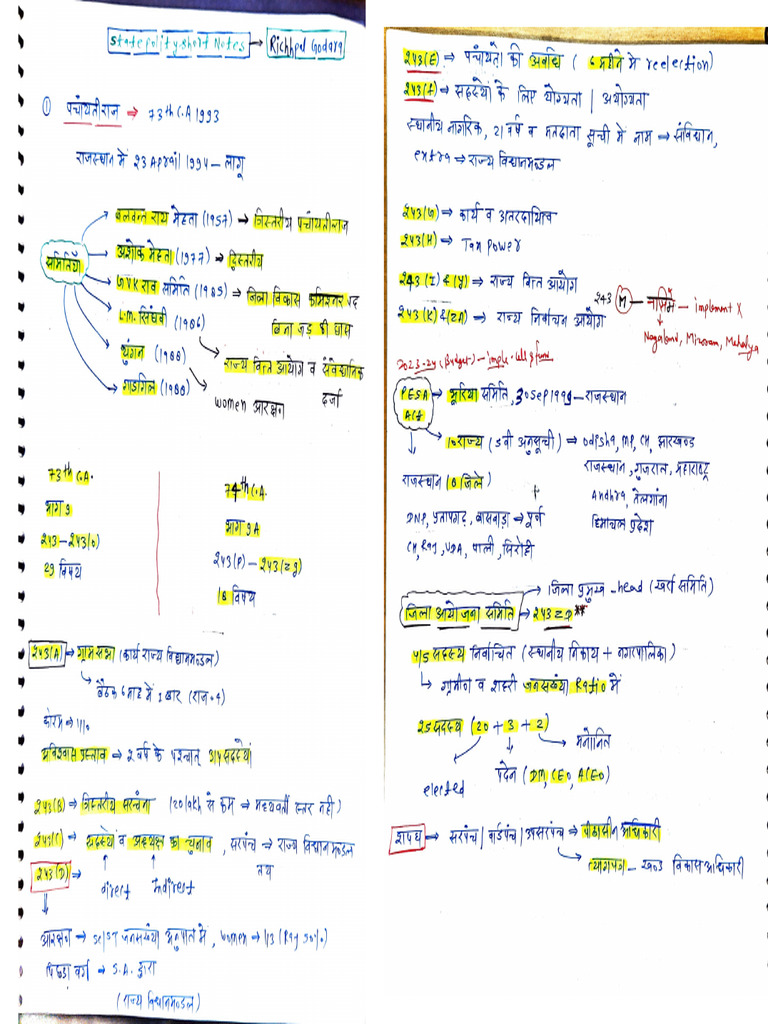 State polity short Notes → Richhpal Godara
① पंचायतीराज → 73th C.A 1993
राजस्थान में 23 April 1994 – लागू
समितियाँ
बलवन्त राय मेहता (1957) → त्रिस्तरीय पंचायतीराज
अशोक मेहता (1977) → द्विस्तरीय
G.V.K राव समिति (1985) → जिला विकास कमिश्नर पद
बिना जड़ की घास
L.m. सिंघवी (1986)
राज्य वित्त आयोग व संवैधानिक दर्जा
थुंगन (1988)
women आरक्षण
गाडगिल (1988)
73th C.A.
भाग 9
243 – 243(0)
29 विषय
74th C.A.
भाग 9A
243(P) – 243(zg)
18 विषय
243(A) → ग्राम सभा (कार्य राज्य विधानमण्डल)
बैठक 6 माह में 1 बार (राज. 4)
कोरम → 1/10
अविश्वास प्रस्ताव → 2 वर्ष के पश्चात् 3/4 सदस्यों
243(B) → त्रिस्तरीय संरचना (20 lakh से कम → मध्यवर्ती स्तर नही)
243(C) → सदस्यों व अध्यक्ष का चुनाव, सरपंच → राज्य विधानमण्डल तय
direct Indirect
243(D) →
आरक्षण → SC/ST जनसंख्या अनुपात में, women → 1/3 (Raj 50%)
पिछड़ा वर्ग → S.A. द्वारा
(राज्य विधानमण्डल)
243(E) → पंचायतो की अवधि ( 6 महीने मे reelection)
243(F) → सदस्यों के लिए योग्यता | अयोग्यता
स्थानीय नागरिक, 21 वर्ष व मतदाता सूची में नाम → संविधान,
extra → राज्य विधानमण्डल
243(G) → कार्य व उतरदायित्व
243(H) → Tax power
243 (I) & (Y) → राज्य वित्त आयोग
243 (K) & (ZA) → राज्य निर्वाचन आयोग
243 (M) – – implement X
Nagaland, Mizoram, Meghalya
2023-24 (Budget) – imple. cell & fund
PESA Act → भूरिया समिति, 30 Sep 1999 – राजस्थान
10 राज्य (5वी अनुसूची) → Odisha, MP, CH, झारखण्ड
राजस्थान, गुजरात, महाराष्ट्र
Andhra, तेलगांना
हिमाचल प्रदेश
राजस्थान (8 जिले)
DNP, प्रतापगढ़, बासवाड़ा → पूर्ण
CH, Raj, UDA, पाली, सिरोही
जिला आयोजना समिति → 243 ZD **
जिला प्रमुख – head (खर्रा समिति)
4/5 सदस्य निर्वाचित (स्थानीय निकाय + नगरपालिका)
ग्रामीन व शहरी जनसंख्या Ratio में
25 सदस्य (20 + 3 + 2)
मनोनित
पदेन (DM, CEO, ACEO)
elected
शपथ → सरपंच | वार्डपंच | उपसरपंच → पीठासीन अधिकारी
त्यागपत्र – खण्ड विकास अधिकारी